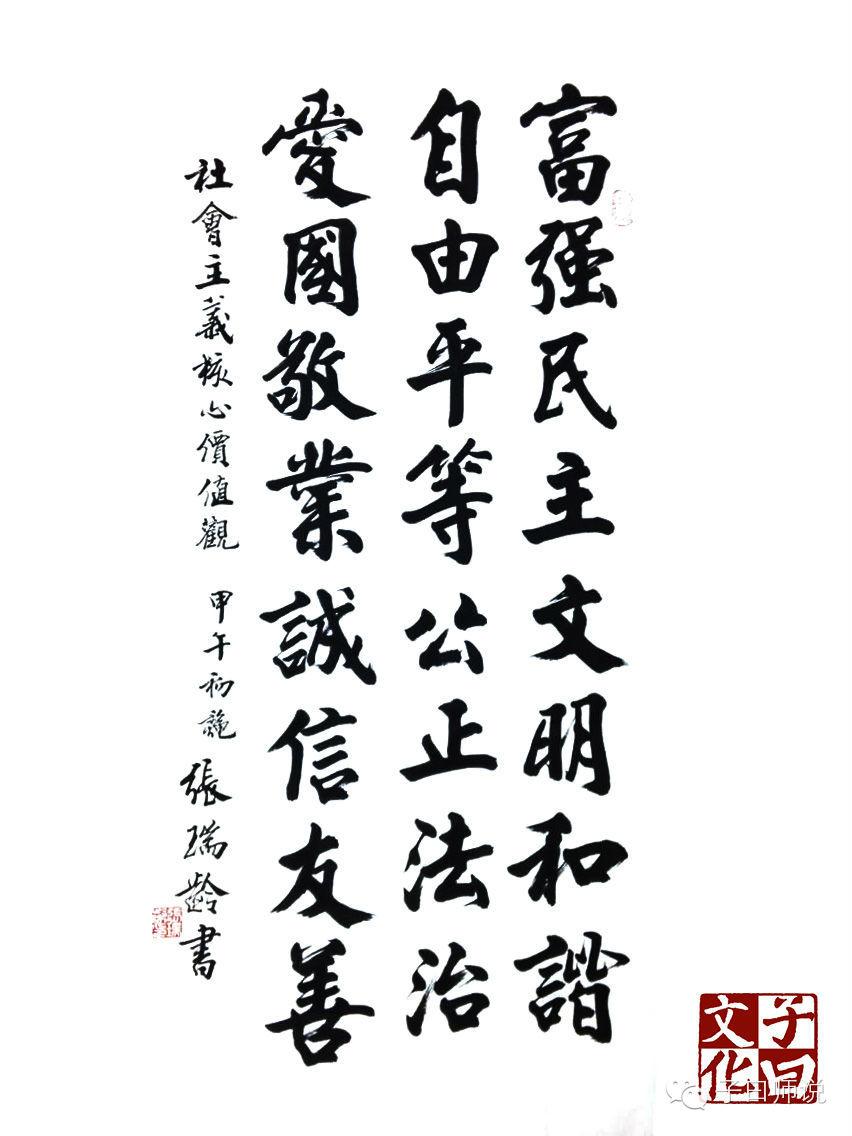 富强民主文明和諧
自由平等公正法治
愛國敬業誠信友善
社會主義核心價值觀 甲午初
張瑞齡書
子曰
文化
子曰师说